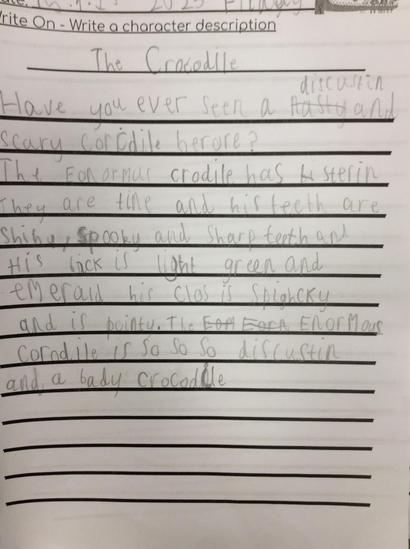 2025 Friday
rite On - Write a character description
The Crocodile
discustin
Have you ever seen a nasty and
scary corcdile berore?
The Enormus crodile has sterin
They are tine and his teeth are
Shihe, spooky and sharp teeth and
His is light green and
emerald his clos is spighcky
and is pointy. The Enormous
corndile is so so so discustin
and a bady crocodile